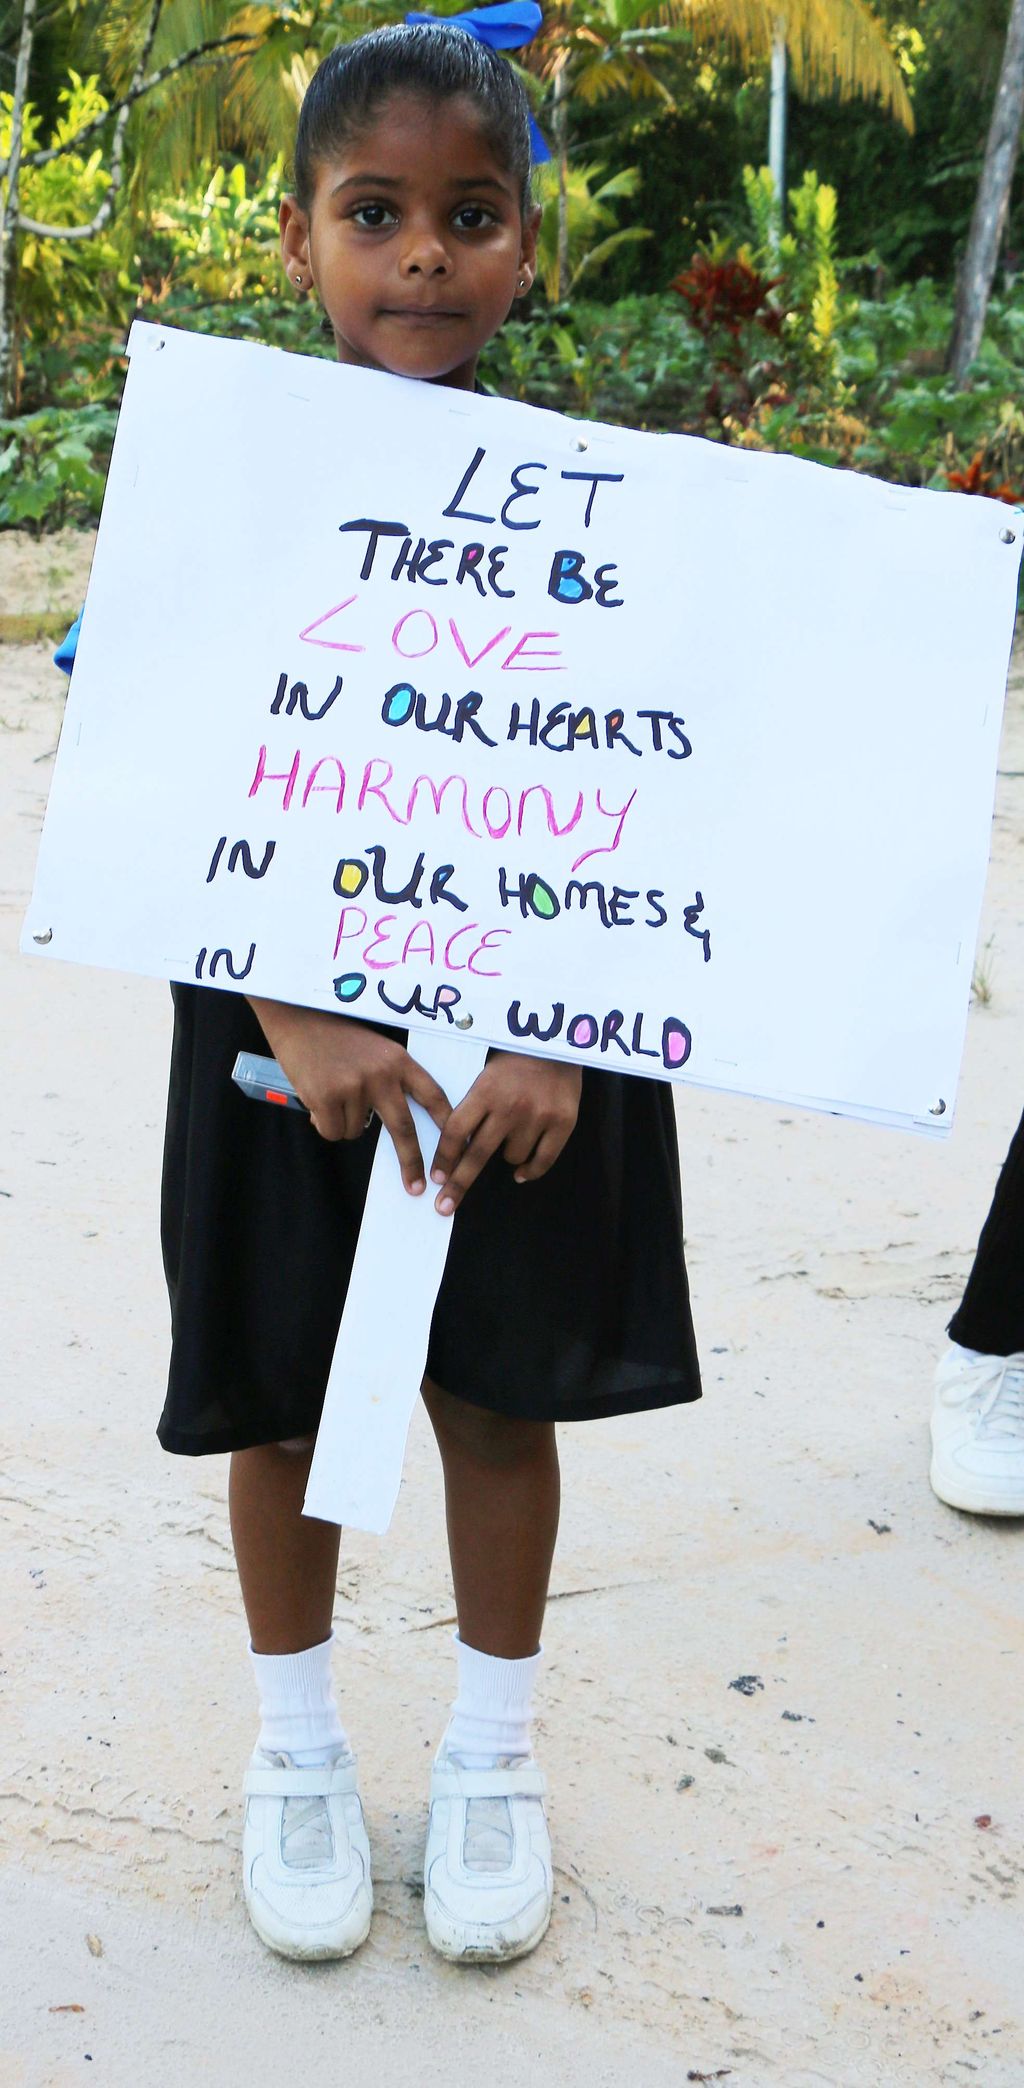 LET
THERE BE
LOVE
IN OUR HEARTS
HARMONY
IN OUR HOMES &
PEACE
IN OUR WORLD